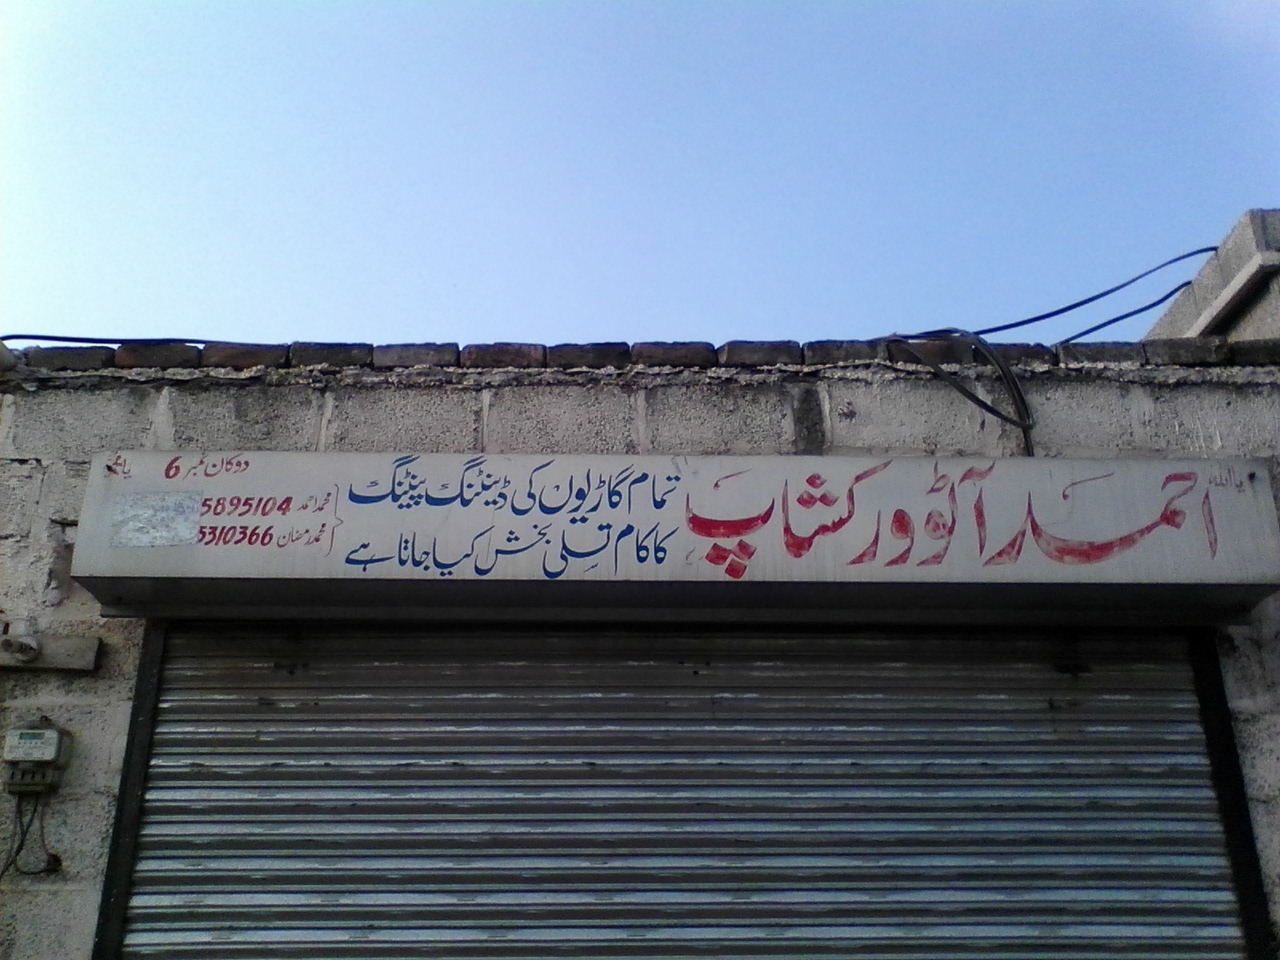 یااللہ
احمد آٹو ورکشاپ
تمام گاڑیوں کی ڈینٹنگ پینٹنگ
کا کام تسلی بخش کیا جاتا ہے
دوکان نمبر 6
یا محمد
محمد احمد 5895104
محمد رمضان 5310366